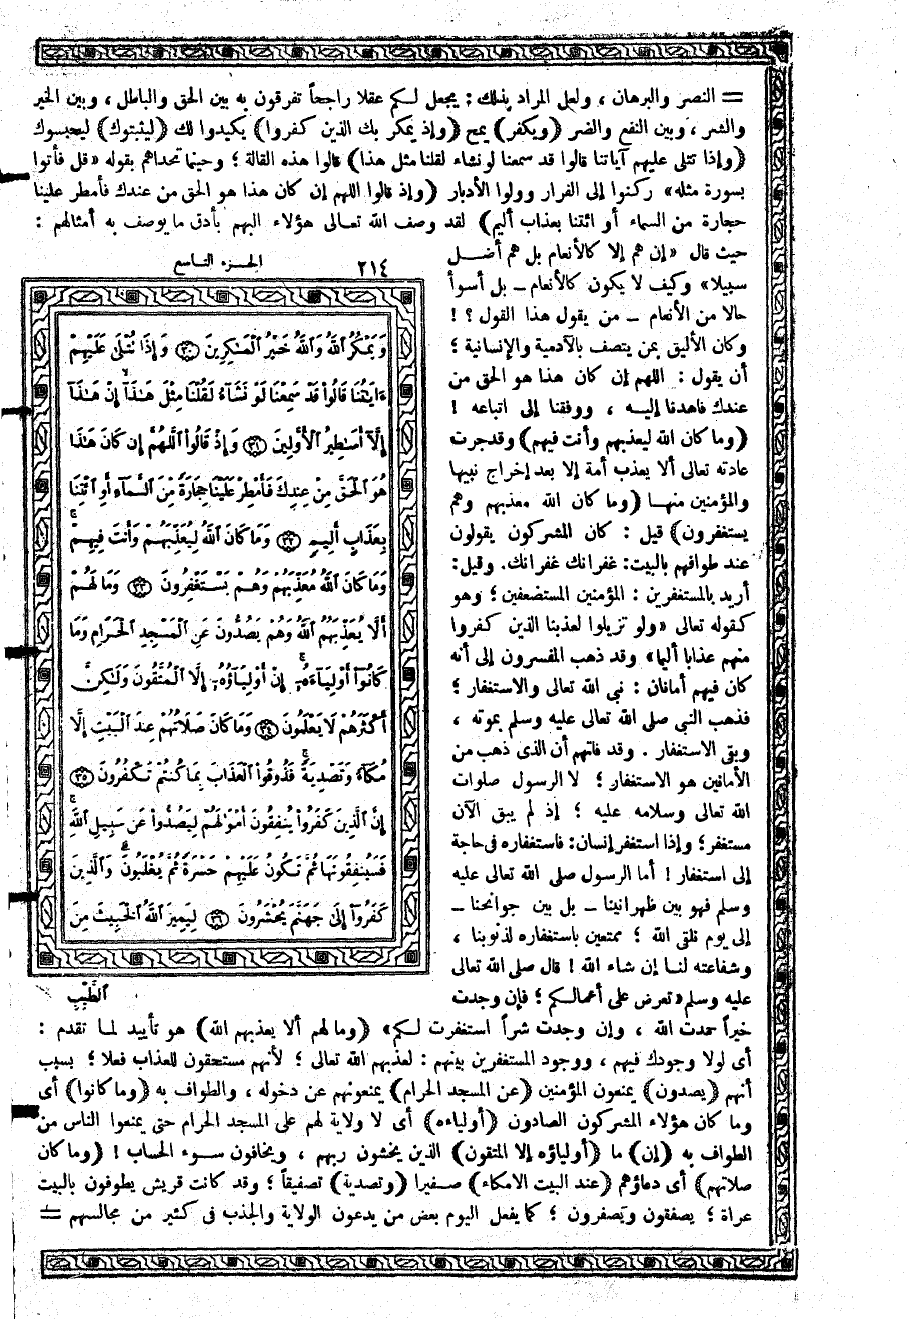 = النصر والبرهان ، ولعل المراد بذلك : يجعل لكم عقلا راجحاً تفرقون به بين الحق والباطل ، وبين الخير
والشر ، وبين النفع والضر (ويكفر) يمح (وإذ يمكر بك الذين كفروا) يكيدوا لك (ليثبتوك) ليحبسوك
(وإذا تتلى عليهم آياتنا قالوا قد سمعنا لو نشاء لقلنا مثل هذا) قالوا هذه القالة ؛ وحينما تحداهم بقوله «قل فأتوا
بسورة مثله» ركنوا إلى الفرار وولوا الأدبار (وإذ قالوا اللهم إن كان هذا هو الحق من عندك فأمطر علينا
حجارة من السماء أو ائتنا بعذاب أليم) لقد وصف الله تعالى هؤلاء البهم بأدق ما يوصف به أمثالهم :
حيث قال «إن هم إلا كالأنعام بل هم أضل
سبيلا» وكيف لا يكون كالأنعام – بل أسوأ
حالا من الأنعام – من يقول هذا القول ؟ !
وكان الأليق بمن يتصف بالآدمية والإنسانية ؛
أن يقول : اللهم إن كان هذا هو الحق من
عندك فاهدنا إليه ، ووفقنا إلى اتباعه !
(وما كان الله ليعذبهم وأنت فيهم) وقد جرت
عادته تعالى ألا يعذب أمة إلا بعد إخراج نبيها
والمؤمنين منها (وما كان الله معذبهم وهم
يستغفرون) قيل : كان المشركون يقولون
عند طوافهم بالبيت : غفرانك غفرانك. وقيل :
أريد بالمستغفرين : المؤمنين المستضعفين ؛ وهو
كقوله تعالى «ولو تزيلوا لعذبنا الذين كفروا
منهم عذابا أليما» وقد ذهب المفسرون إلى أنه
كان فيهم أمانان : نبي الله تعالى والاستغفار ؛
فذهب النبي صلى الله تعالى عليه وسلم بموته ،
وبقي الاستغفار . وقد فاتهم أن الذى ذهب من
الأمانين هو الاستغفار ؛ لا الرسول صلوات
الله تعالى وسلامه عليه ؛ إذ لم يبق الآن
مستغفر ؛ وإذا استغفر إنسان : فاستغفاره في حاجة
إلى استغفار ! أما الرسول صلى الله تعالى عليه
وسلم فهو بين ظهرانينا – بل بين جوانحنا –
إلى يوم تلقى الله ؛ ممتعين باستغفاره لذنوبنا ،
وشفاعته لنا إن شاء الله ! قال صلى الله تعالى
عليه وسلم «تعرض على أعمالكم ؛ فإن وجدت
الجزء التاسع ٢١٤
وَيَمْكُرُ ٱللَّهُ وَٱللَّهُ خَيْرُ ٱلْمَٰكِرِينَ ٣٠ وَإِذَا تُتْلَىٰ عَلَيْهِمْ
ءَايَٰتُنَا قَالُوا۟ قَدْ سَمِعْنَا لَوْ نَشَآءُ لَقُلْنَا مِثْلَ هَٰذَآ إِنْ هَٰذَآ
إِلَّآ أَسَٰطِيرُ ٱلْأَوَّلِينَ ٣١ وَإِذْ قَالُوا۟ ٱللَّهُمَّ إِن كَانَ هَٰذَا
هُوَ ٱلْحَقَّ مِنْ عِندِكَ فَأَمْطِرْ عَلَيْنَا حِجَارَةً مِّنَ ٱلسَّمَآءِ أَوِ ٱئْتِنَا
بِعَذَابٍ أَلِيمٍ ٣٢ وَمَا كَانَ ٱللَّهُ لِيُعَذِّبَهُمْ وَأَنتَ فِيهِمْ
وَمَا كَانَ ٱللَّهُ مُعَذِّبَهُمْ وَهُمْ يَسْتَغْفِرُونَ ٣٣ وَمَا لَهُمْ
أَلَّا يُعَذِّبَهُمُ ٱللَّهُ وَهُمْ يَصُدُّونَ عَنِ ٱلْمَسْجِدِ ٱلْحَرَامِ وَمَا
كَانُوٓا۟ أَوْلِيَآءَهُۥٓ إِنْ أَوْلِيَآؤُهُۥٓ إِلَّا ٱلْمُتَّقُونَ وَلَٰكِنَّ
أَكْثَرَهُمْ لَا يَعْلَمُونَ ٣٤ وَمَا كَانَ صَلَاتُهُمْ عِندَ ٱلْبَيْتِ إِلَّا
مُكَآءً وَتَصْدِيَةً فَذُوقُوا۟ ٱلْعَذَابَ بِمَا كُنتُمْ تَكْفُرُونَ ٣٥
إِنَّ ٱلَّذِينَ كَفَرُوا۟ يُنفِقُونَ أَمْوَٰلَهُمْ لِيَصُدُّوا۟ عَن سَبِيلِ ٱللَّهِ
فَسَيُنفِقُونَهَا ثُمَّ تَكُونُ عَلَيْهِمْ حَسْرَةً ثُمَّ يُغْلَبُونَ وَٱلَّذِينَ
كَفَرُوٓا۟ إِلَىٰ جَهَنَّمَ يُحْشَرُونَ ٣٦ لِيَمِيزَ ٱللَّهُ ٱلْخَبِيثَ مِنَ
ٱلطَّيِّبِ
خيراً حمدت الله ، وإن وجدت شراً استغفرت لكم» (وما لهم ألا يعذبهم الله) هو تأييد لما تقدم :
أى لولا وجودك فيهم ، ووجود المستغفرين بينهم : لعذبهم الله تعالى ؛ لأنهم مستحقون للعذاب فعلا ؛ بسبب
أنهم (يصدون) يمنعون المؤمنين (عن المسجد الحرام) يمنعونهم عن دخوله ، والطواف به (وما كانوا) أى
وما كان هؤلاء المشركون الصادون (أولياءه) أى لا ولاية لهم على المسجد الحرام حتى يمنعوا الناس من
الطواف به (إن) ما (أولياؤه إلا المتقون) الذين يخشون ربهم ، ويخافون سوء الحساب ! (وما كان
صلاتهم) أى دعاؤهم (عند البيت إلا مكاء) صفيرا (وتصدية) تصفيقاً ؛ وقد كانت قريش يطوفون بالبيت
عراة ؛ يصفقون ويصفرون ؛ كما يفعل اليوم بعض من يدعون الولاية والجذب فى كثير من مجالسهم =